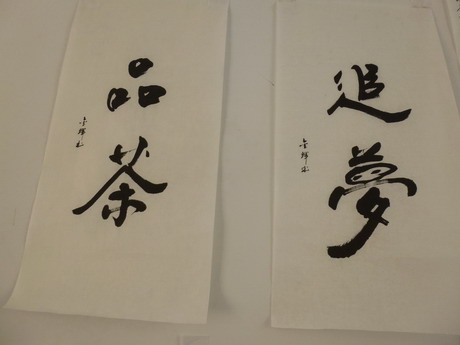 品茶
追夢